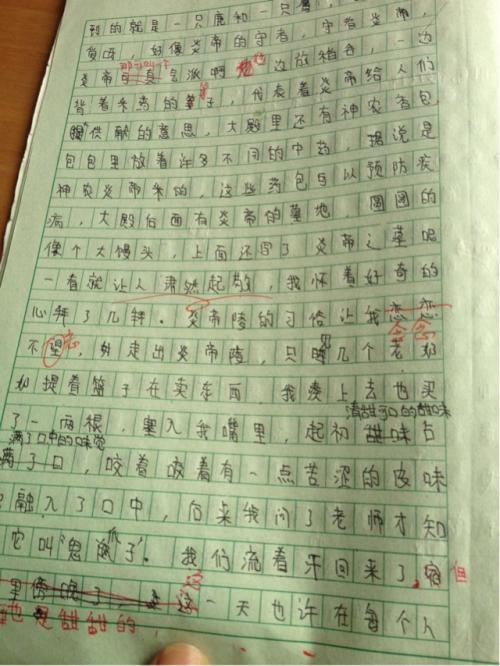 到的就是一只鹿和一只
货味，好像炎帝的守者，守者炎帝，
炎帝 真气派啊 边放稻谷，一边
背着禾束的 子，代表着炎帝给人们
供献的意思，大殿里还有神农香包
包包里放着许多不同的中药，据说是
神农炎帝采的，这些药包可以预防疾
病，大殿后面有炎帝的墓地，圆圆的
像个大馒头，上面还写了炎帝之墓呢
一看就让人肃然起敬，我怀着好奇的
心拜了几拜。炎帝陵的习俗让我恋恋
念念
不望忘，刚走出炎帝陵，只 几个老奶
奶提着篮子在卖东西，我凑上去也买
清甜可口的甜味
了一两根，塞入我嘴里，起初甜味占
满了口中的味觉
满了口，咬着咬着有一点苦涩的皮味
融入了口中，后来我问了老师才知
爪
它叫“鬼 子”。我们流着汗回来了，但
里 这
一天也许在每个人
也是甜甜的